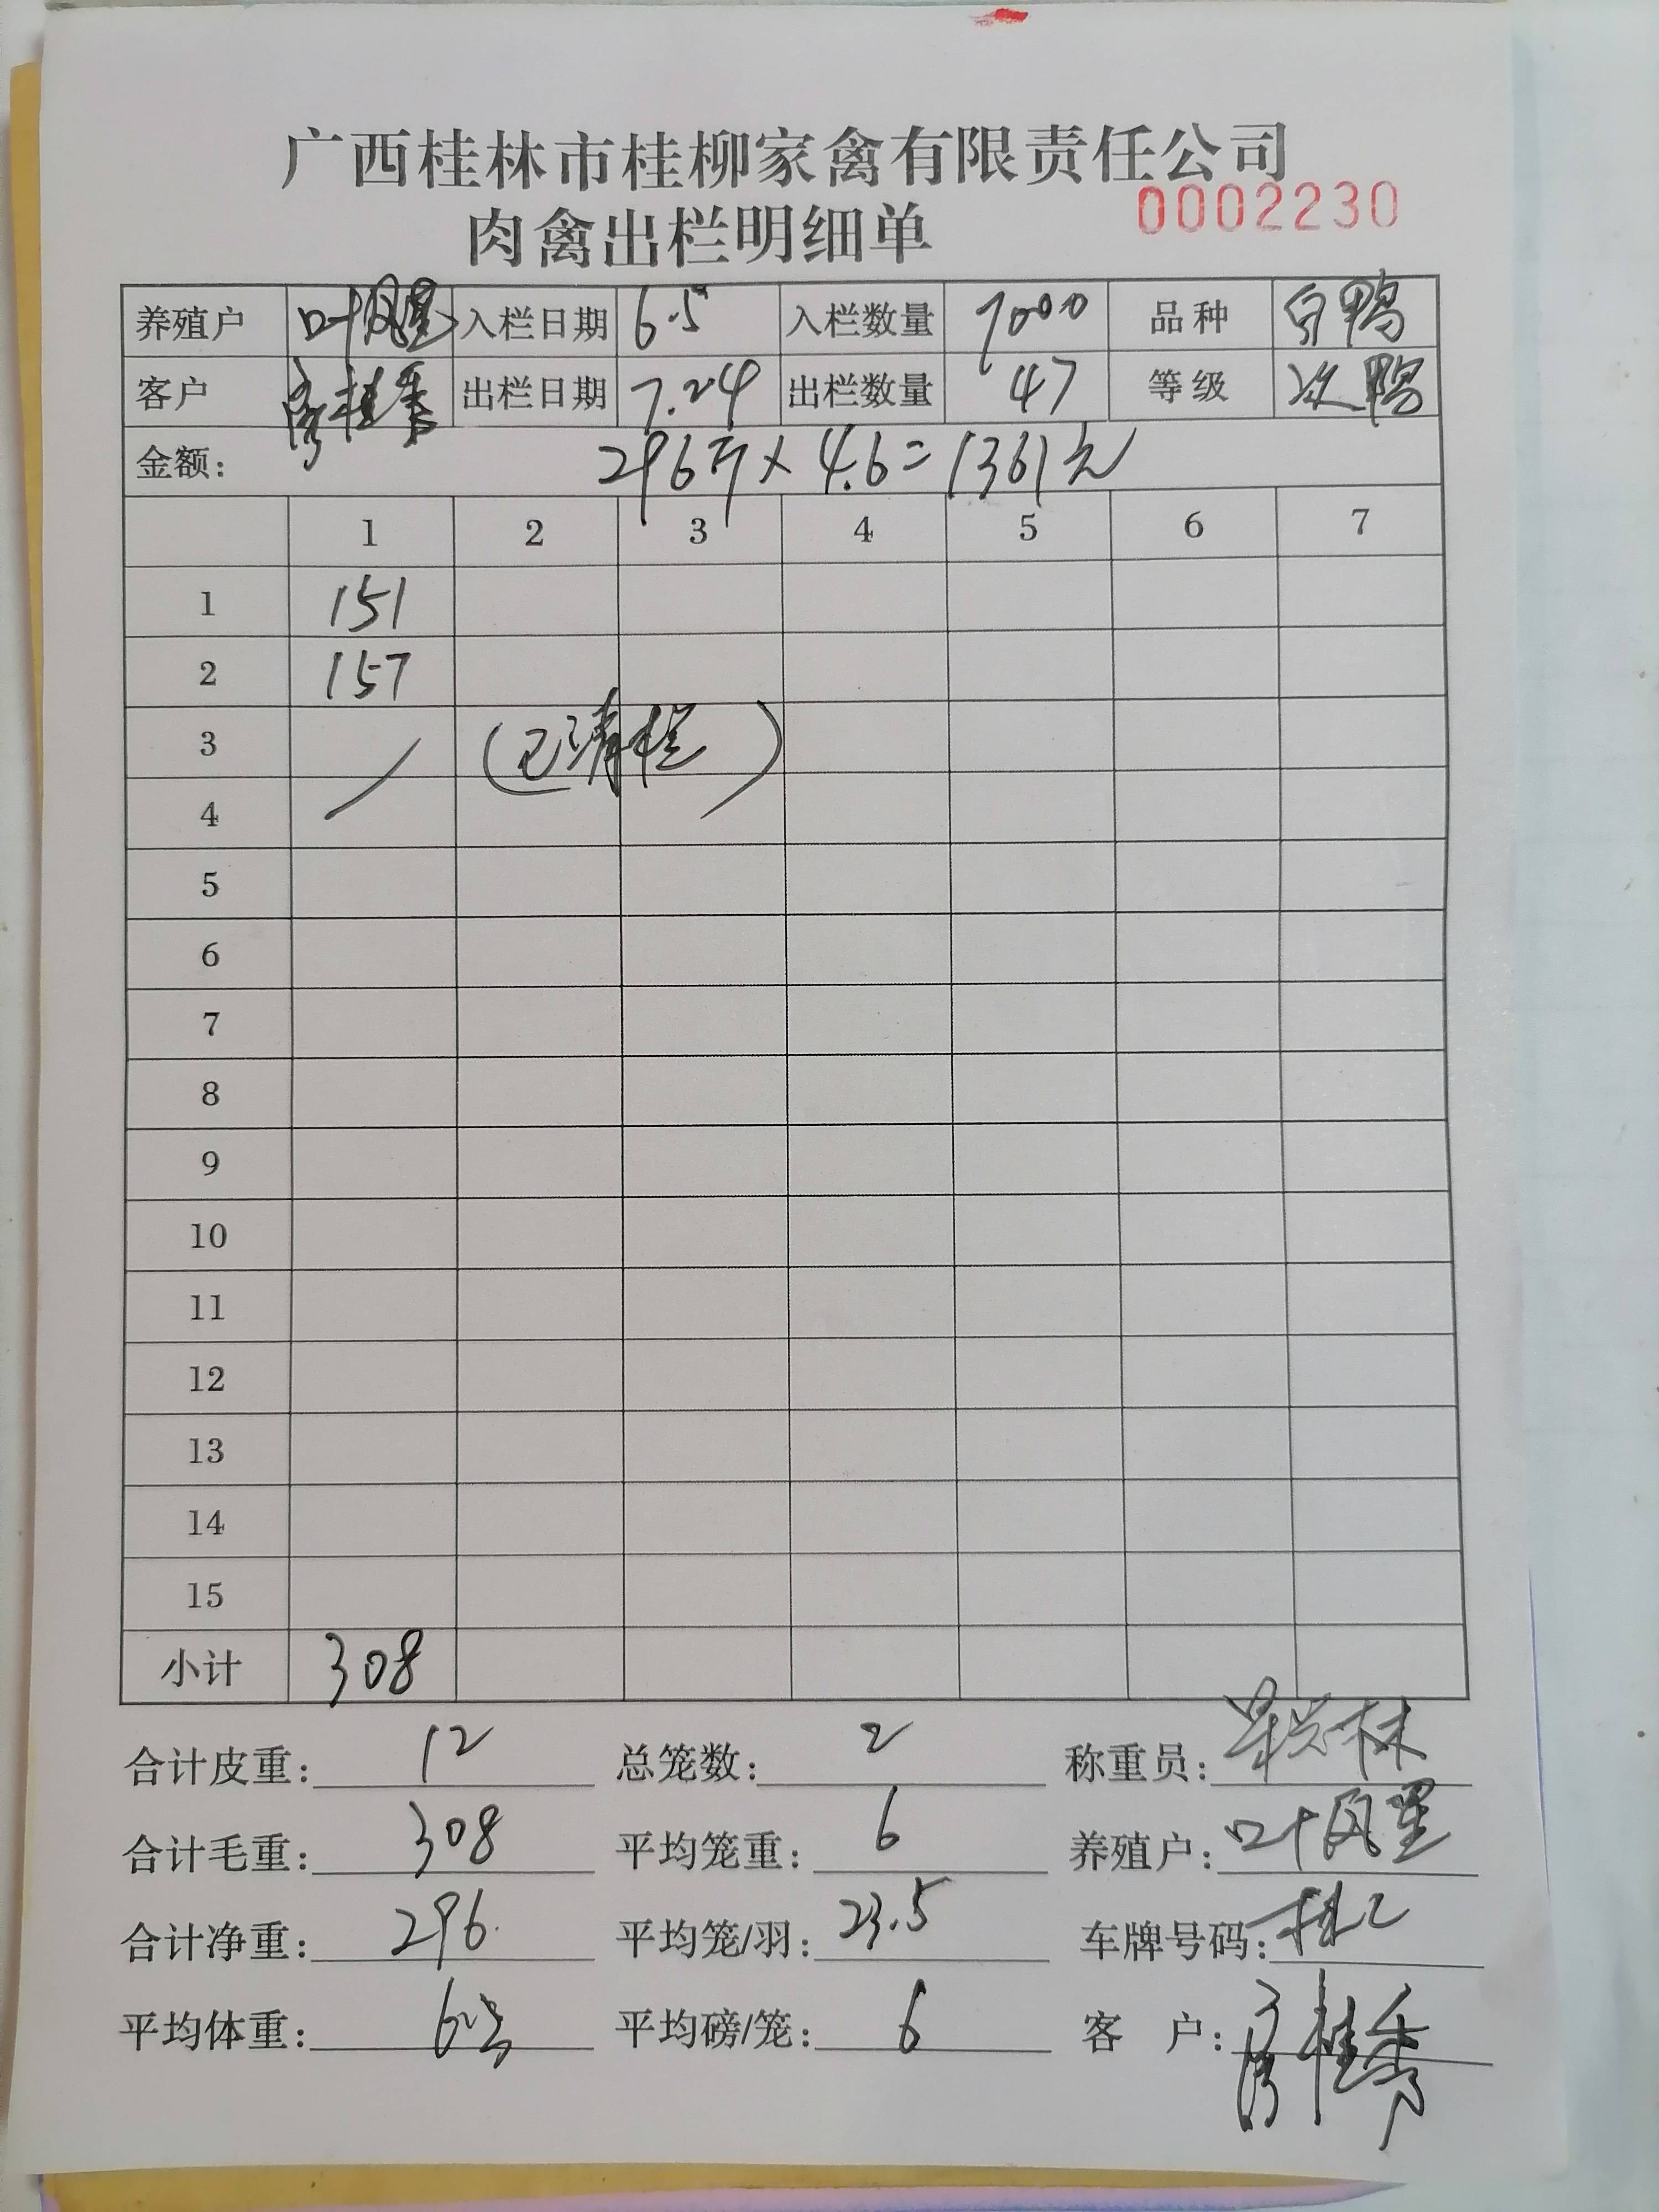 广西桂林市桂柳家禽有限责任公司
肉禽出栏明细单 0002230
养殖户 叶凤星 入栏日期 6.5 入栏数量 7000 品种 白鸭
客户 桂秀 出栏日期 7.24 出栏数量 47 等级 次鸭
金额: 296斤×4.6=1361元
1 2 3 4 5 6 7
1 151
2 157
3 (已清栏)
4
5
6
7
8
9
10
11
12
13
14
15
小计 308
合计皮重: 12 总笼数: 2 称重员: 林
合计毛重: 308 平均笼重: 6 养殖户: 叶凤星
合计净重: 296 平均笼/羽: 23.5 车牌号码:
平均体重: 平均磅/笼: 6 客户: 桂秀